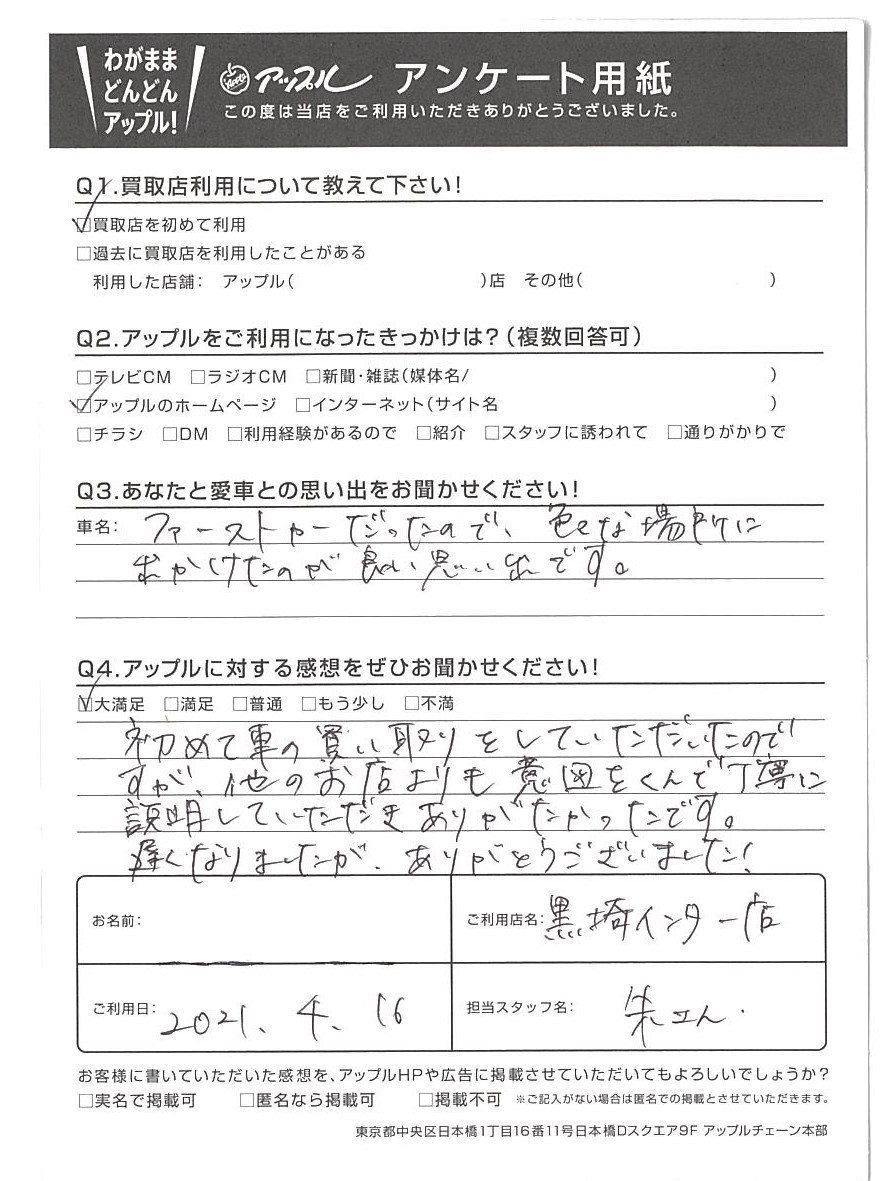 わがまま
どんどん
アップル!
Apple アップル アンケート用紙
この度は当店をご利用いただきありがとうございました。
Q1.買取店利用について教えて下さい!
☑買取店を初めて利用
□過去に買取店を利用したことがある
利用した店舗: アップル( )店 その他( )
Q2.アップルをご利用になったきっかけは?(複数回答可)
□テレビCM □ラジオCM □新聞・雑誌(媒体名/ )
☑アップルのホームページ □インターネット(サイト名 )
□チラシ □DM □利用経験があるので □紹介 □スタッフに誘われて □通りがかりで
Q3.あなたと愛車との思い出をお聞かせください!
車名: ファーストカーだったので、色々な場所に
出かけたのが良い思い出です。
Q4.アップルに対する感想をぜひお聞かせください!
☑大満足 □満足 □普通 □もう少し □不満
初めて車の買い取りをしていただいたので
すが、他のお店よりも意図をくんで丁寧に
説明していただきありがたかったです。
遅くなりましたが、ありがとうございました!
お名前:
ご利用店名: 黒埼インター店
ご利用日: 2021. 4. 16
担当スタッフ名: 朱さん.
お客様に書いていただいた感想を、アップルHPや広告に掲載させていただいてもよろしいでしょうか?
□実名で掲載可 □匿名なら掲載可 □掲載不可 ※ご記入がない場合は匿名での掲載とさせていただきます。
東京都中央区日本橋1丁目16番11号日本橋Dスクエア9F アップルチェーン本部